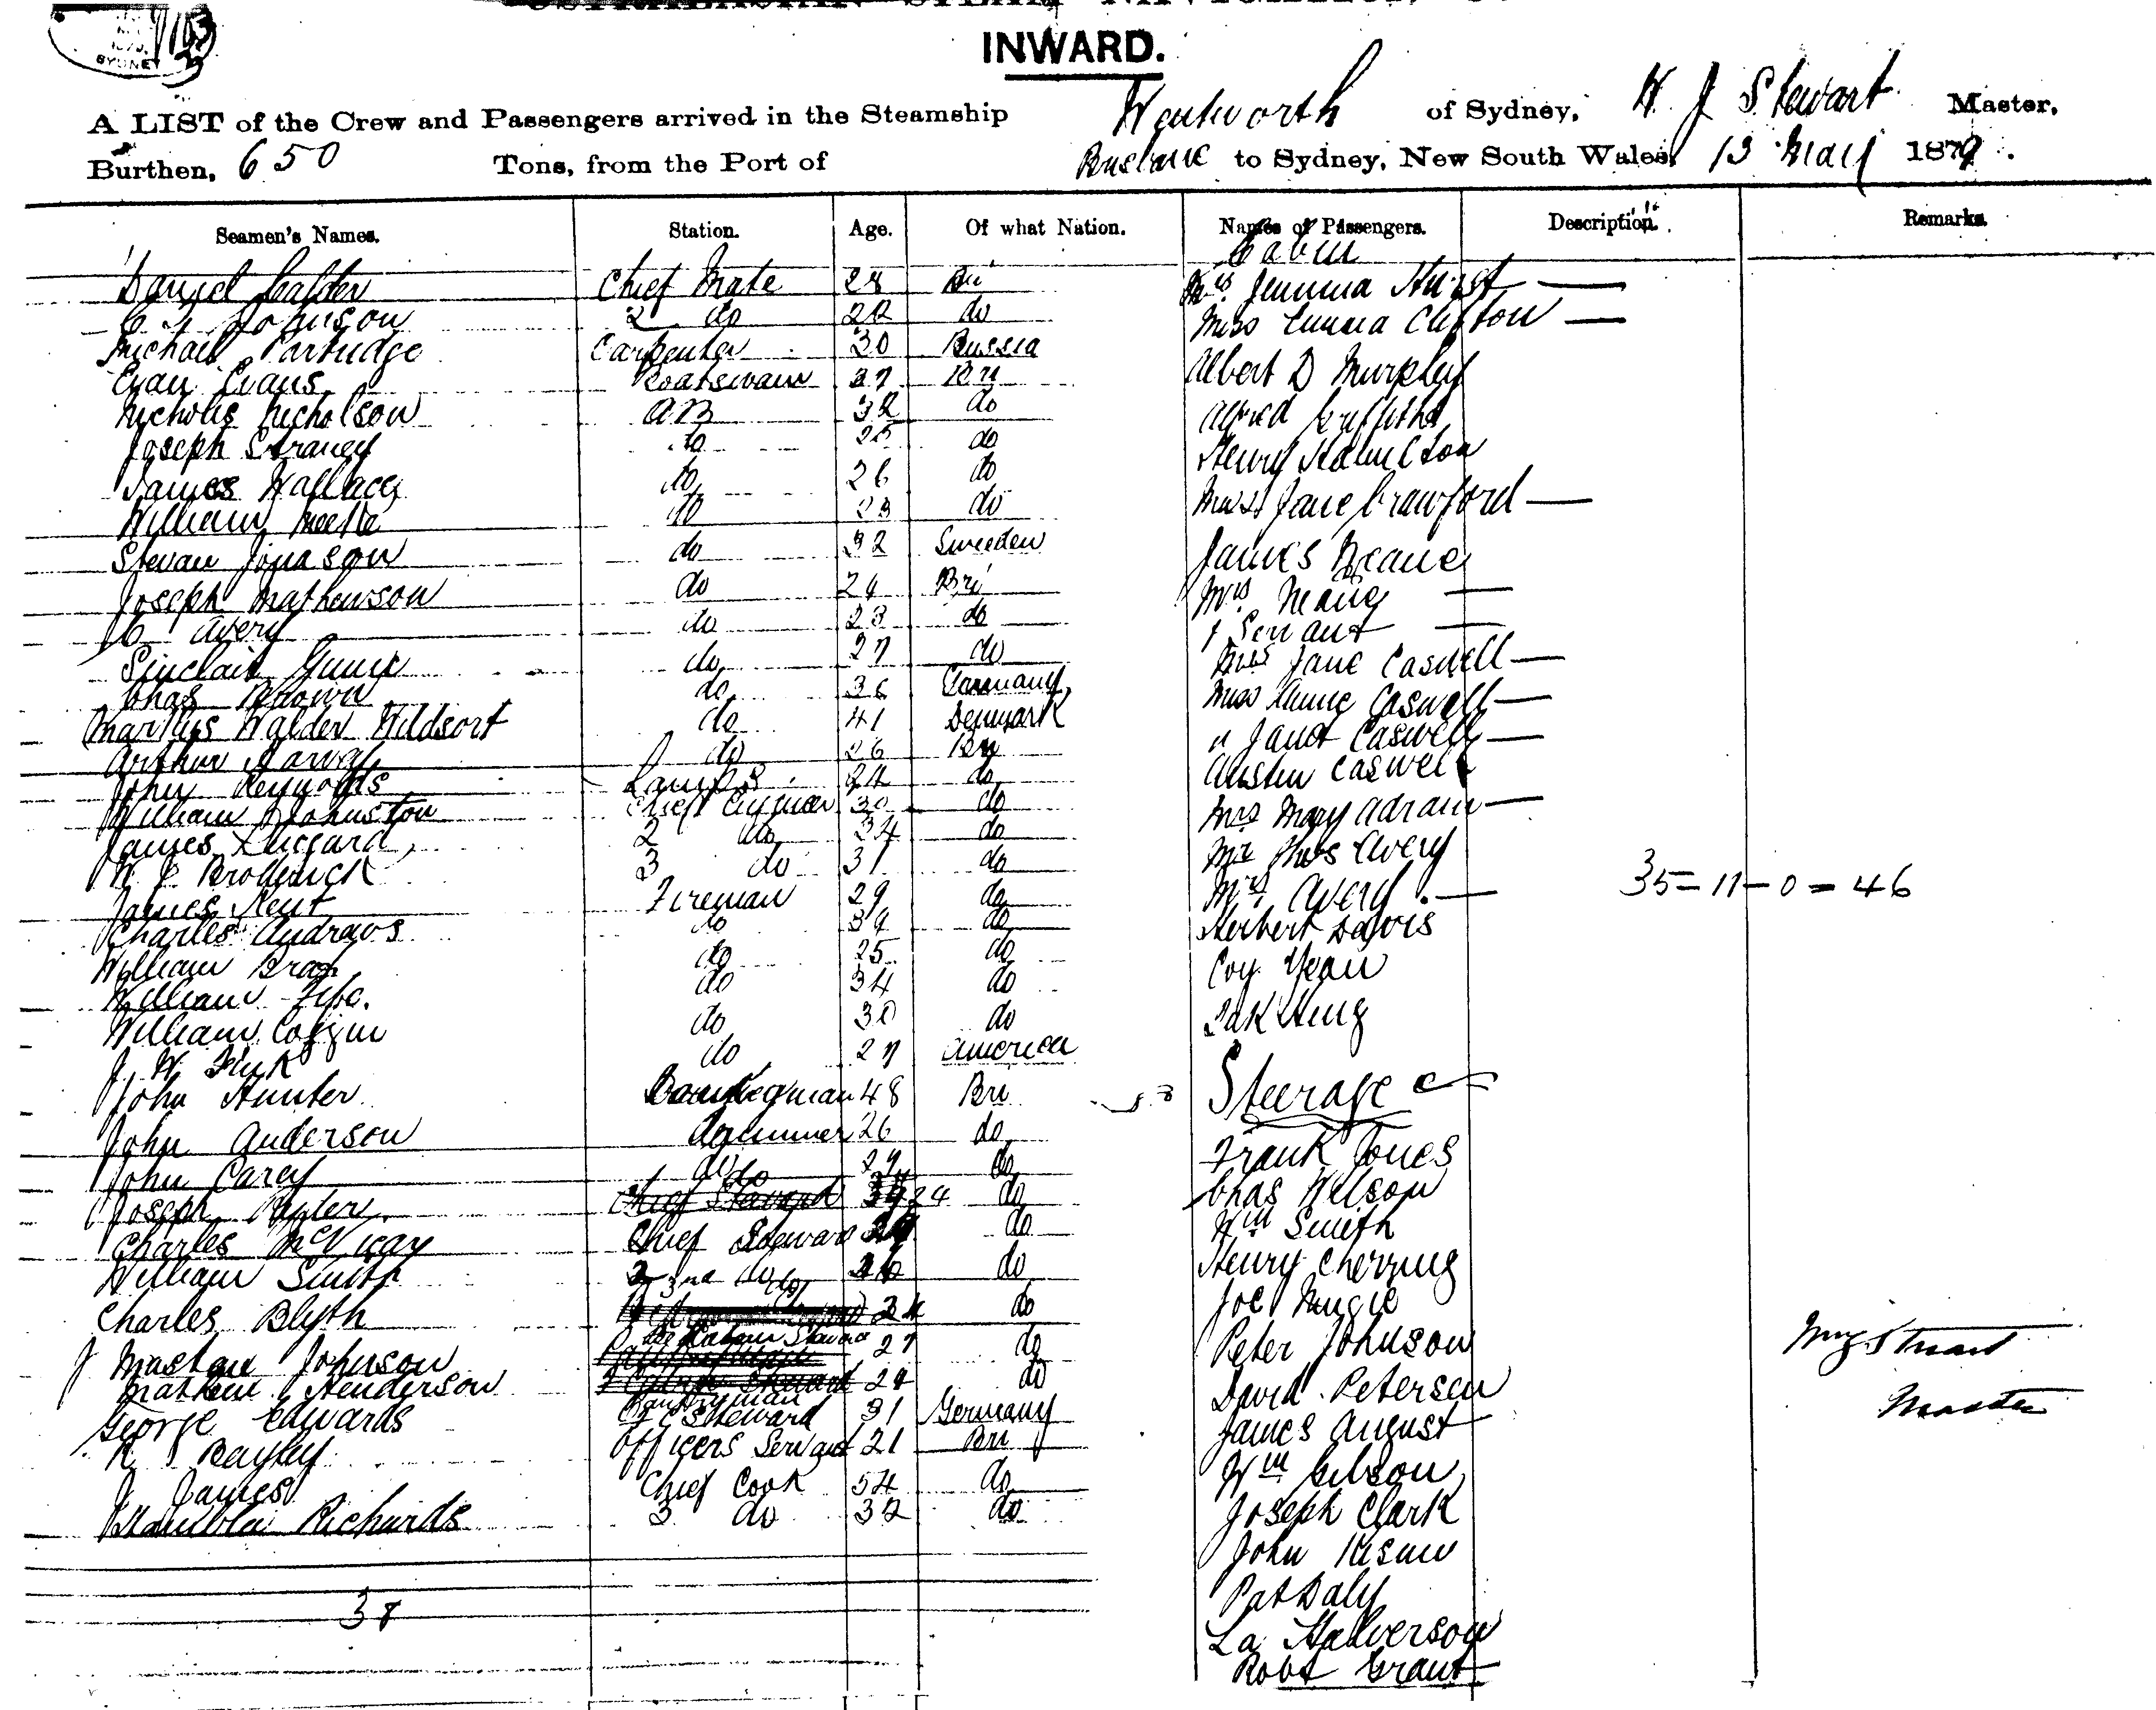 INWARD.
A LIST of the Crew and Passengers arrived in the Steamship Wentworth of Sydney, W. J Stewart Master,
Burthen, 650 Tons, from the Port of Brisbane to Sydney, New South Wales, 13 May 1879.
Seamen's Names. Station. Age. Of what Nation. Names of Passengers. Description. Remarks.
Cabin
Daniel Calder Chief Mate 28 Bri Mrs. Jemima Hurst —
Johnson 2 do 22 do Miss Emma Clifton —
Michael Partridge Carpenter 30 Russia Albert D Murphy
Evan Evans Boatswain 37 Bri Alfred Griffiths
Nicholis Nicholson AB 32 do Henry Hamilton
Joseph Straney do 25 do
James Wallace do 26 do Miss Jane Crawford —
William do 23 do
Stevan Jonason do 32 Sweeden James Neane
Joseph Mathewson do 24 Bri Mrs —
C Avery do 23 do 1 Servant —
Sinclair Gunn do 27 do Miss Jane Caswell —
Chas Brown do 36 Germany Miss Annie Caswell —
Walder Wildsort do 41 Denmark " Janet Caswell —
Arthur do 26 Bri Austin Caswell
John Reynolds Lamps 24 do
William Johnston Chief Engineer 30 do Mrs Mary Adrain —
James Luggard 2 do 34 do Mr Thos Avery
W J Broderick 3 do 31 do Mrs Avery — 35=11-0=46
James Kent Fireman 29 do
Charles Andraws do 39 do Herbert Davis
William Bray do 25 do Coy Yean
William do 34 do
William Coggin do 30 do
J. W. Fink do 27 America
John Hunter 48 Bri Steerage
John Anderson 26 do Frank Jones
John Carey do 29 do Chas Wilson
Joseph do 24 do Wm Smith
Charles McVicay Chief Steward do Henry Cherring
William Smith 2nd do 26 do Joe
Charles Blyth do 24 do Peter Johnson
J Johnson 27 do David Petersen
Mathew Henderson Pantryman 28 do
George Edwards F C Steward 31 Germany James August
R Bayley Officers Servant 21 Bri Wm Gibson
J James Chief Cook 54 do Joseph Clark
Richards 3 do 32 do John
38 Pat Daly
La Halverson
Robt Grant
Master